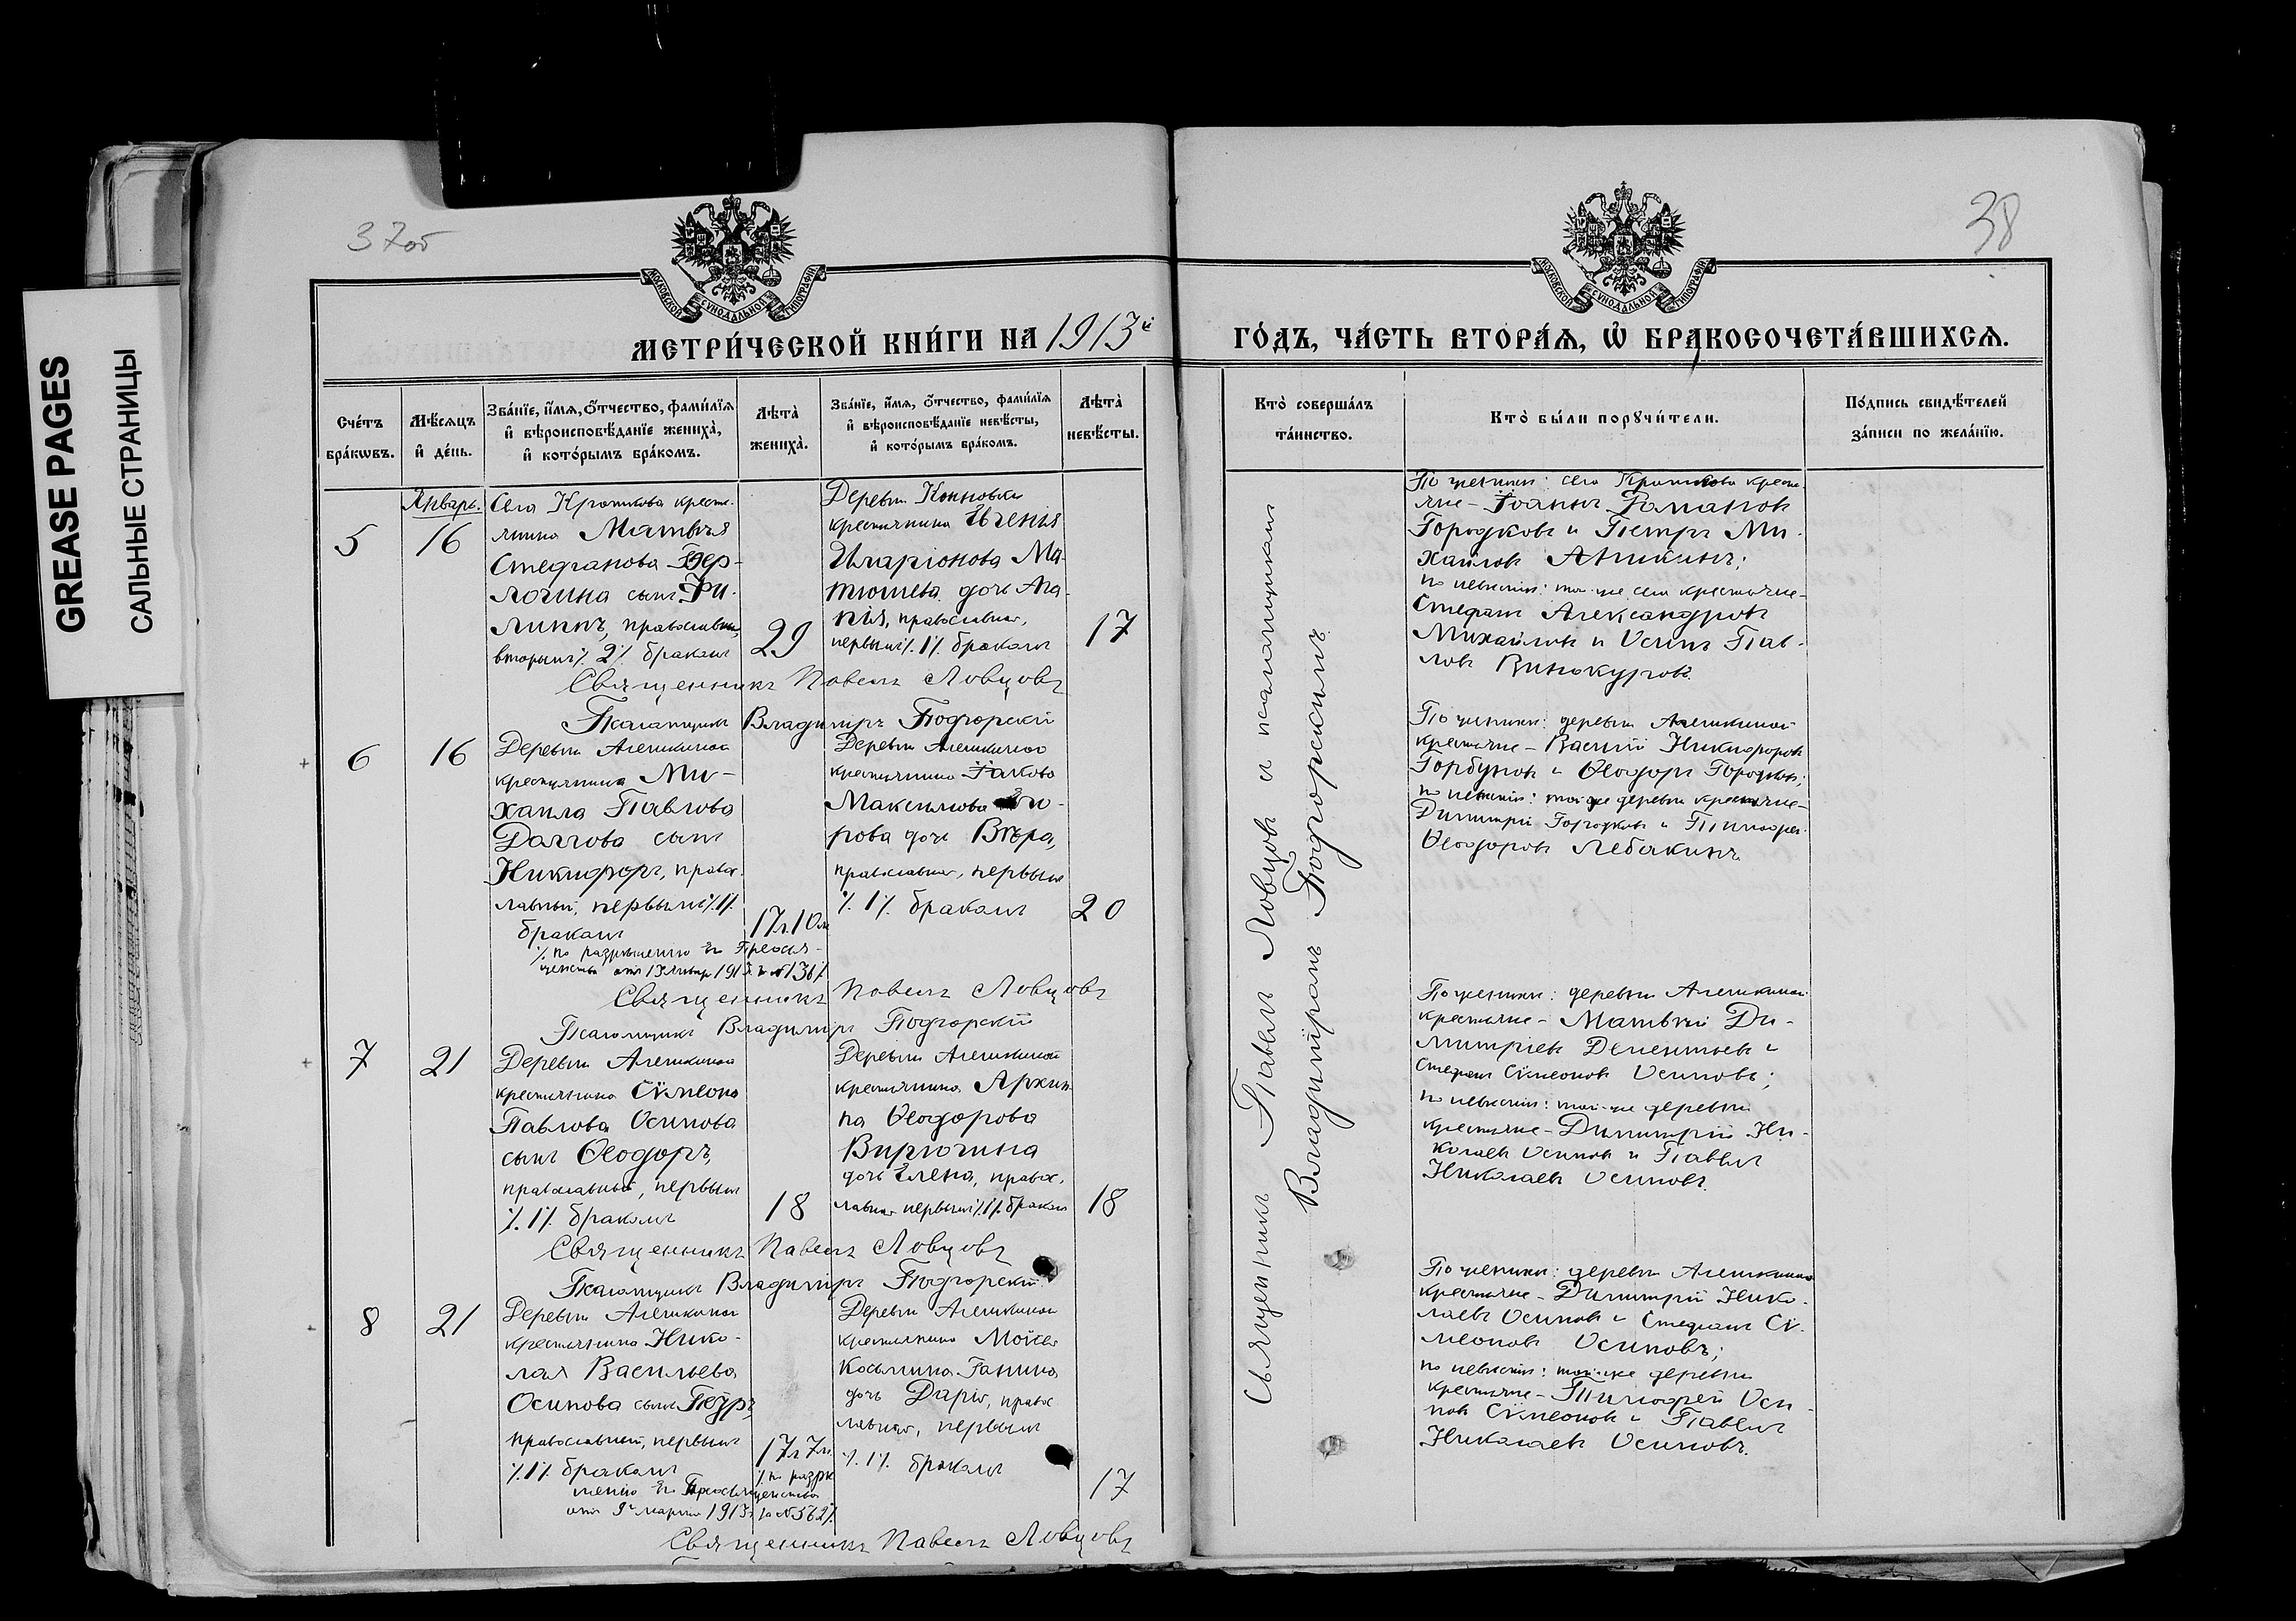 GREASE PAGES
САЛЬНЫЕ СТРАНИЦЫ
37об
МОСКОВСКОЙ СУНОДАЛЬНОЙ ТИПОГРАФІИ
МЕТРИ́ЧЕСКОЙ КНИ́ГИ НА 1913й
Сче́тъ бра́кωвъ.
Мѣ́сяцъ и҆ де́нь.
Зва́нїе, и҆́мя, ѻ҆́тчество, фами́лїя
и҆ вѣроисповѣ́данїе жениха̀,
и҆ кото́рымъ бра́комъ.
Лѣта̀ жениха̀.
Зва́нїе, и҆́мя, ѻ҆́тчество, фами́лїя
и҆ вѣроисповѣ́данїе невѣ́сты,
и҆ кото́рымъ бра́комъ.
Лѣта̀ невѣ́сты.
Январь.
5
16
Села Кроткова кресть-
янина Матвѣя
Стефанова
логина сынъ Фи-
липпъ, православн,
вторымъ ٪ 2٪ бракомъ
29
Деревни
крестьянина Евгенія
Иларіонова Ма-
тюшева дочь Ага-
пія, православная,
первымъ ٪ 1٪ бракомъ
17
Священникъ Павелъ Ловцовъ
Псаломщикъ Владиміръ Подгорскій
6
16
Деревни Алешкиной
крестьянина Ми-
хаила Павлова
Долгова сынъ
Никифоръ, правос-
лавный, первымъ ٪ 1٪
бракомъ
17л.10м
٪ по разрѣшенію Его Преосвя-
щенства отъ
Деревни Алешкиной
крестьянина Іакова
Максимова
рова дочь Вѣра,
православная, первымъ
٪ 1٪ бракомъ
20
Священникъ Павелъ Ловцовъ
Псаломщикъ Владиміръ Подгорскій
7
21
Деревни Алешкиной
крестьянина Сѵмеона
Павлова Осипова
сынъ Ѳеодоръ,
православный, первымъ
٪ 1٪ бракомъ
18
Деревни Алешкиной
крестьянина Архип-
па Ѳеодорова
Вирючина
дочь Елена, правос-
лавная первымъ ٪ 1٪ бракомъ
18
Священникъ Павелъ Ловцовъ
Псаломщикъ Владиміръ Подгорскій
8
21
Деревни Алешкиной
крестьянина Нико-
лая Васильева
Осипова сынъ Петръ,
православный, первымъ
٪ 1٪ бракомъ
17л 7м.
٪ по разрѣ
шенію Его Преосвященства
отъ 9го марта 1913г за № 562٪
Деревни Алешкиной
крестьянина Моисея
Косьмина Ганина
дочь Дарія, правос
лавная, первымъ
٪ 1٪ бракомъ
17
Священникъ Павелъ Ловцовъ
38
МОСКОВСКОЙ СУНОДАЛЬНОЙ ТИПОГРАФІИ
ГО́ДЪ, ЧА́СТЬ ВТОРА́Я, Ѡ҆ БРАКОСОЧЕТА́ВШИХСЯ.
Кто̀ соверша́лъ та́инство.
Кто̀ бы́ли порꙋчи́тели.
По́дпись свидѣ́телей за́писи по жела́нїю.
Священникъ Павелъ Ловцовъ и псаломщикомъ
Владиміромъ Подгорскимъ
По женихѣ: села Кроткова кресть-
яне - Іоаннъ Романовъ
Городковъ и Петръ Ми-
хайловъ Аникинъ;
по невѣстѣ: того-же села крестьяне-
Стефанъ Александровъ
Михайловъ и Осипъ Пав-
ловъ Винокуровъ.
По женихѣ: деревни Алешкиной
крестьяне - Василій Никифоровъ
Горбуновъ и Ѳеодоръ Городковъ;
по невѣстѣ: той же деревни крестьяне-
Димитрій Городковъ и Тимофей
Ѳеодоровъ Лебакинъ
По женихѣ: деревни Алешкиной
крестьяне - Матвѣй Ди-
митріевъ Дементьевъ и
Стефанъ Сѵмеоновъ Осиповъ;
по невѣстѣ: той-же деревни
крестьяне - Димитрій Ни-
колаевъ Осиповъ и Павелъ
Николаевъ Осиповъ.
По женихѣ: деревни Алешкиной
крестьяне - Димитрій Нико-
лаевъ Осиповъ и Стефанъ Сѵ-
меоновъ Осиповъ;
по невѣстѣ: той-же деревни
крестьяне - Тимофей Оси-
повъ Сѵмеоновъ и Павелъ
Николаевъ Осиповъ.